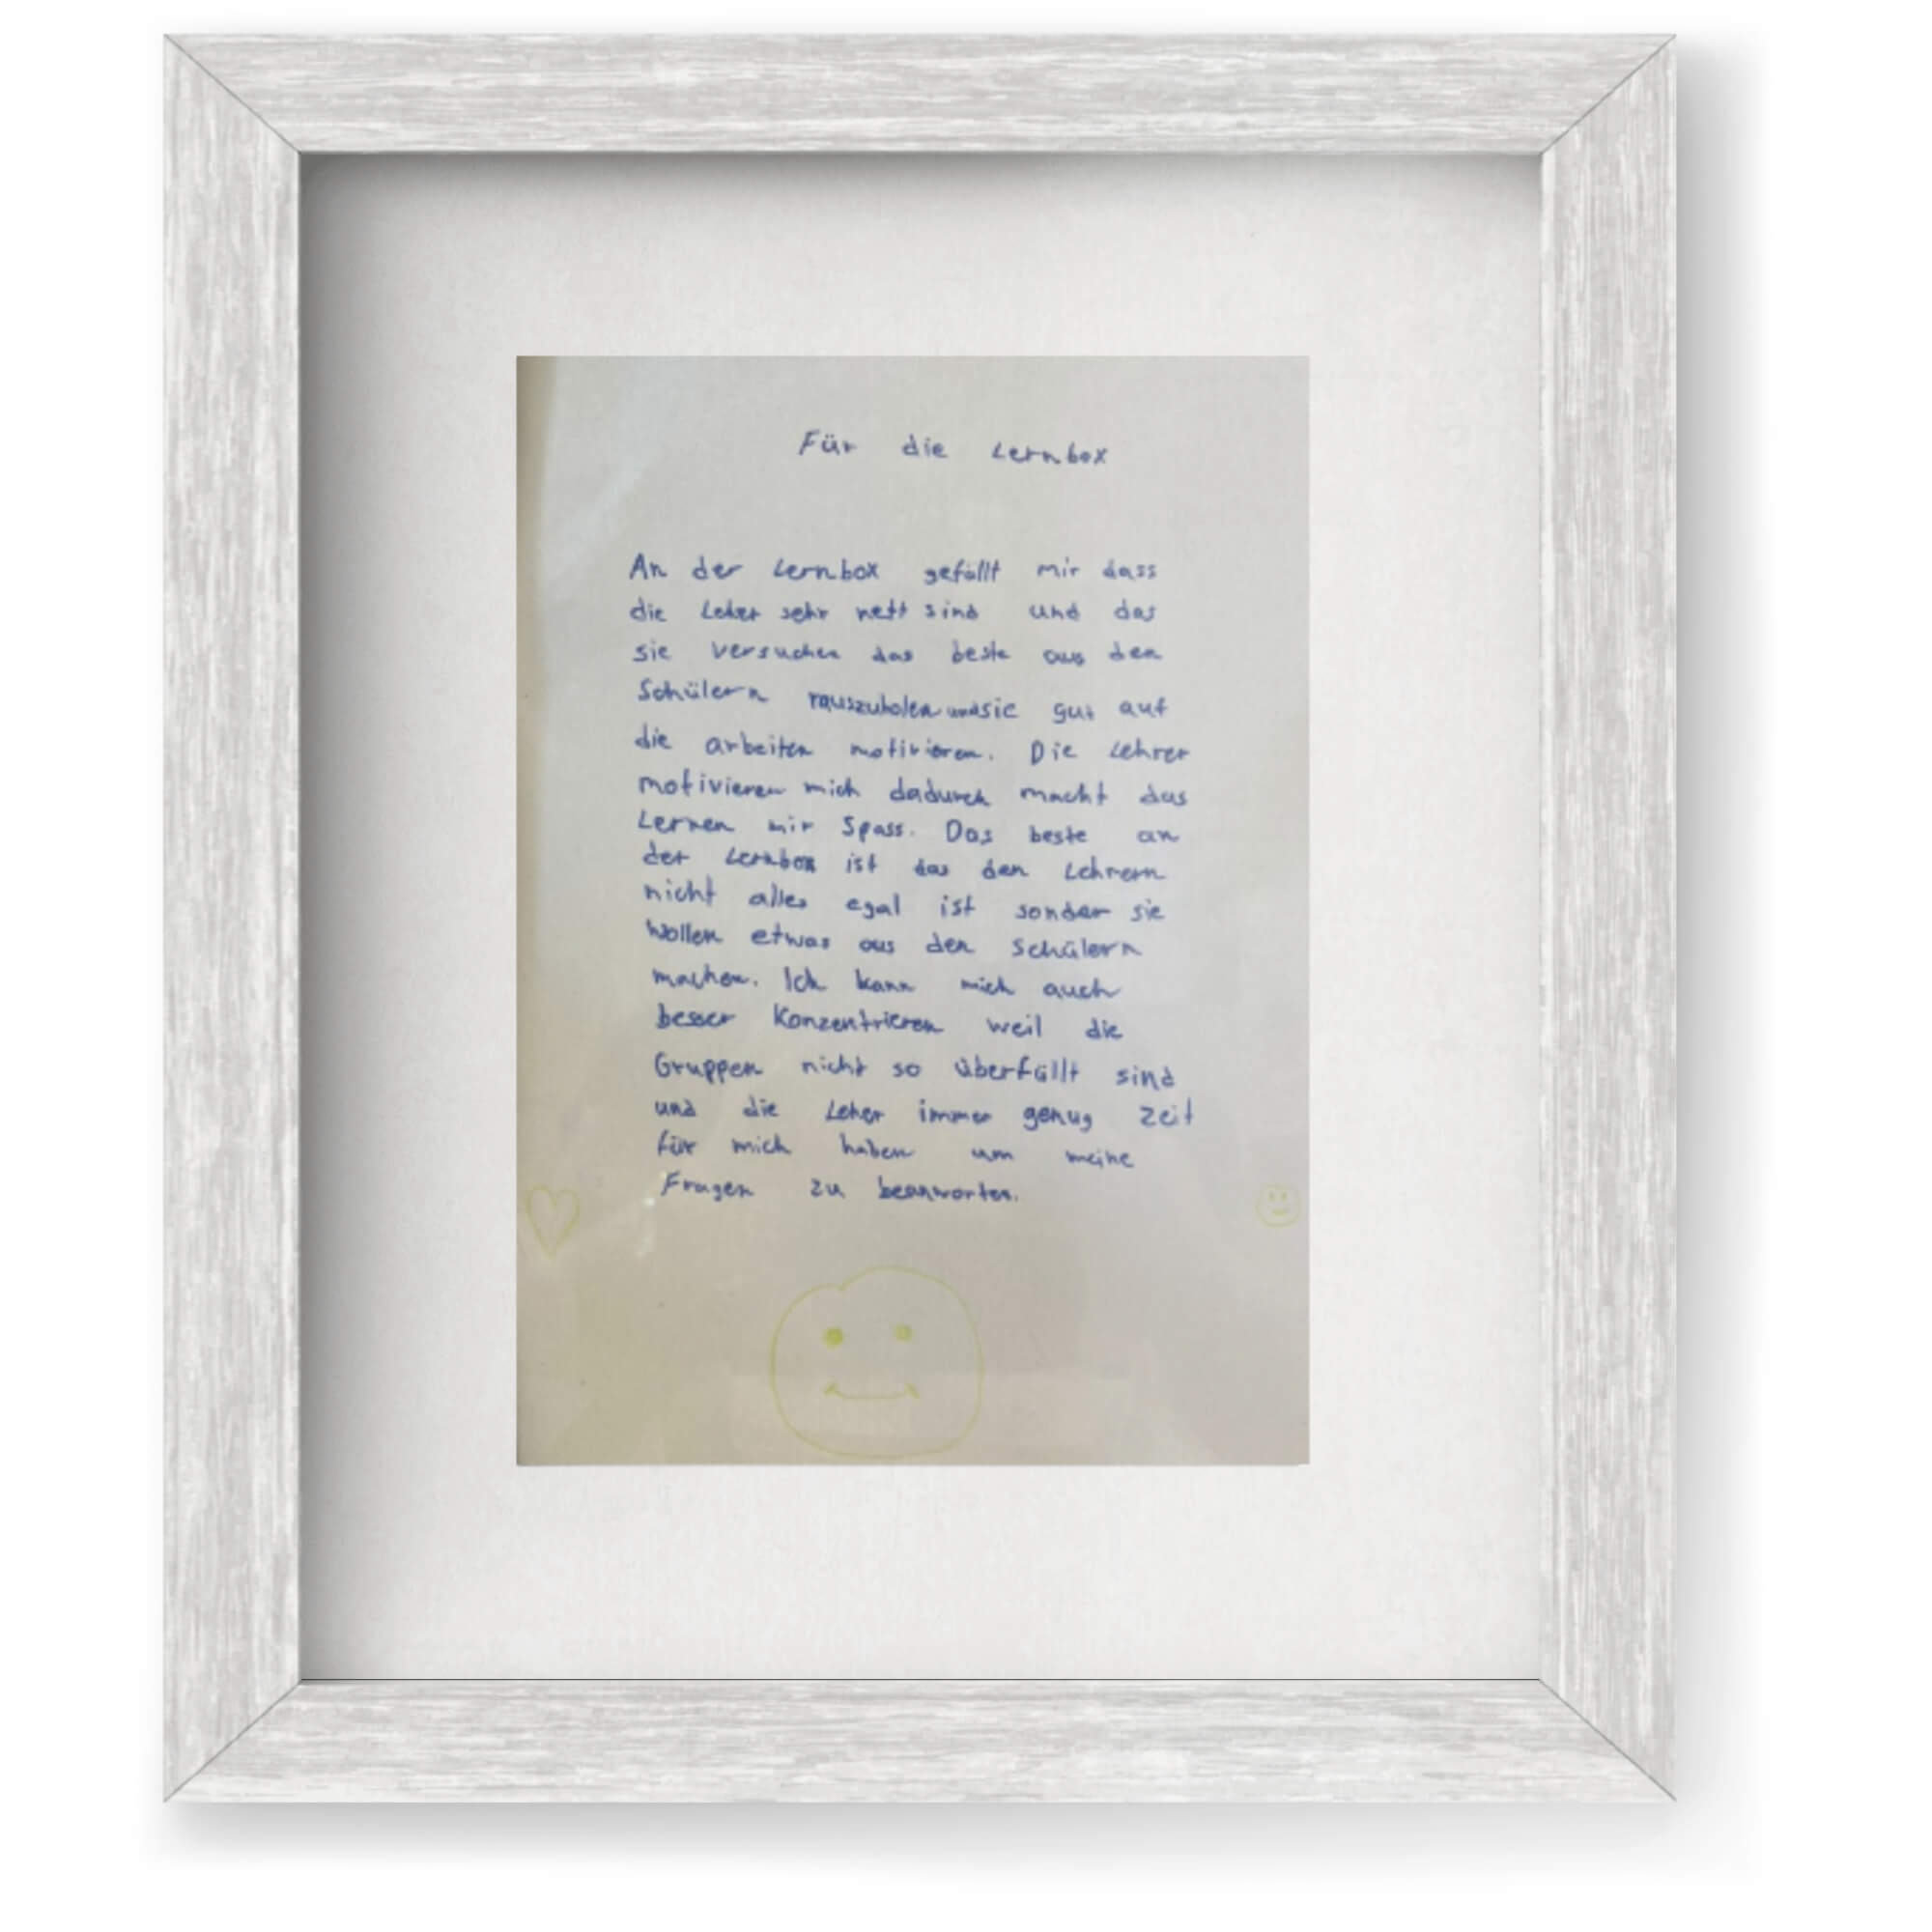 Für die Lernbox
An der Lernbox gefällt mir dass
die Leher sehr nett sind und das
sie versuchen das beste aus den
Schülern rauszuholen und sie gut auf
die arbeiten motivieren. Die Lehrer
motivieren mich dadurch macht das
Lernen mir Spass. Das beste an
der Lernbox ist das den Lehrern
nicht alles egal ist sonder sie
wollen etwas aus den Schülern
machen. Ich kann mich auch
besser Konzentrieren weil die
Gruppen nicht so überfüllt sind
und die Leher immer genug Zeit
für mich haben um meine
Fragen zu beanworten.